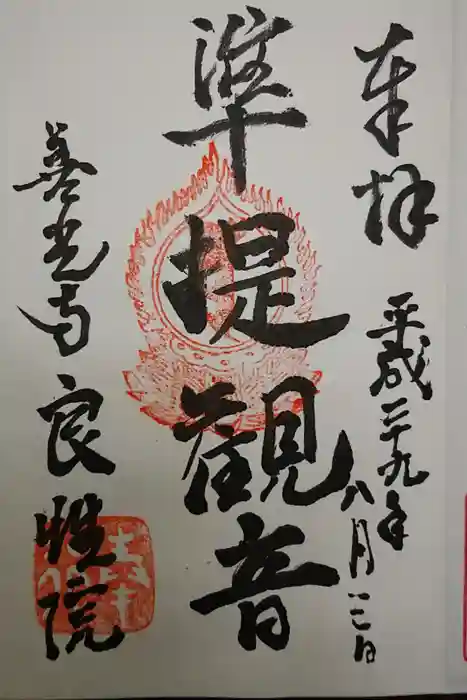 奉拝
平成二十九年
八月二日
準提観音
善光寺良性院